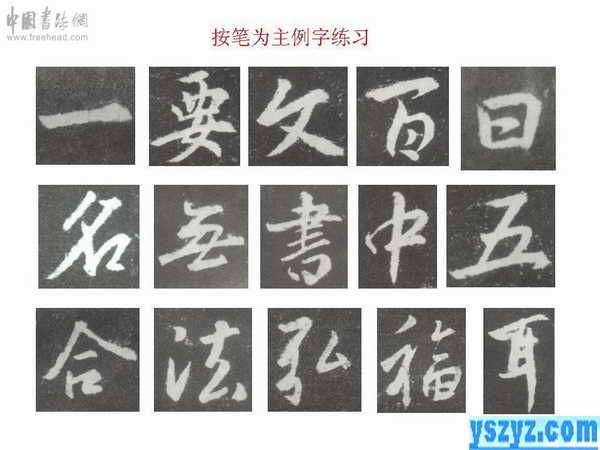 中国书法網
www.freehead.com
按笔为主例字练习
一要文百日
名無書中五
合法弘福耳
yszyz.com